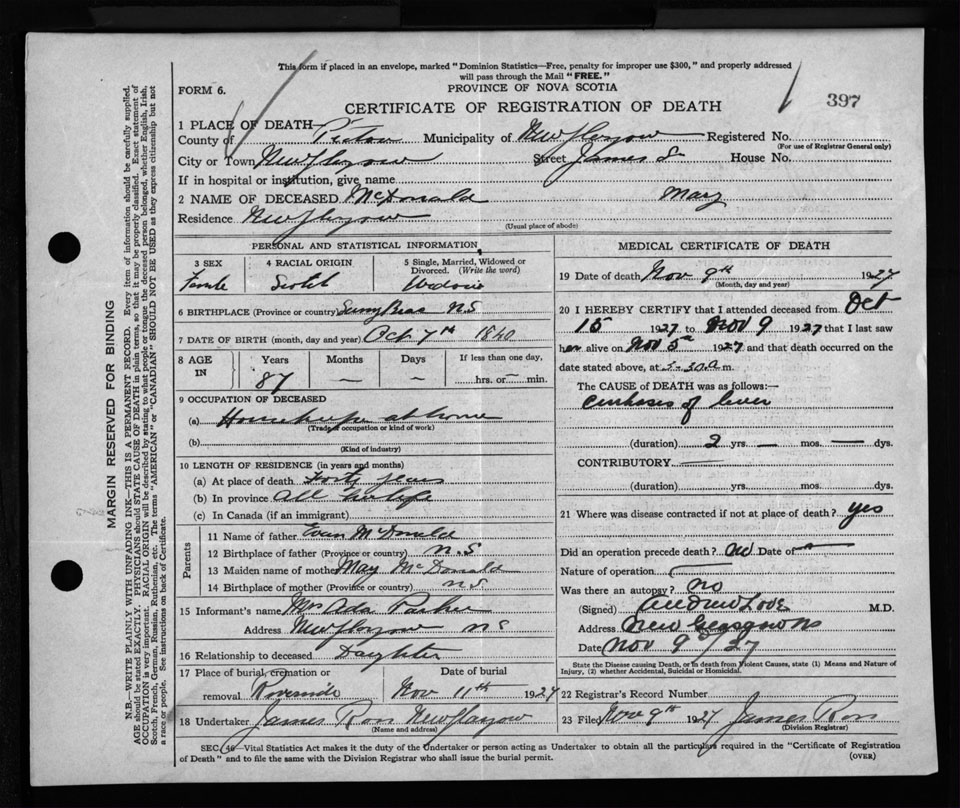 This form if placed in an envelope, marked "Dominion Statistics—Free, penalty for improper use $300," and properly addressed
will pass through the Mail "FREE."
FORM 6.
PROVINCE OF NOVA SCOTIA
CERTIFICATE OF REGISTRATION OF DEATH
397
1 PLACE OF DEATH—
County of Pictou Municipality of New Glasgow Registered No.
(For use of Registrar General only)
City or Town New Glasgow Street James S House No.
If in hospital or institution, give name
2 NAME OF DECEASED McDonald Mary
Residence New Glasgow
(Usual place of abode)
PERSONAL AND STATISTICAL INFORMATION
3 SEX
Female
4 RACIAL ORIGIN
Scotch
5 Single, Married, Widowed or
Divorced. (Write the word)
Widow
6 BIRTHPLACE (Province or country) Sunny Brae N.S
7 DATE OF BIRTH (month, day and year) Oct 7th 1840
8 AGE
IN
Years
87
Months
—
Days
—
If less than one day,
hrs. or — min.
9 OCCUPATION OF DECEASED
(a) Housekeeper at home
(Trade, occupation or kind of work)
(b)
(Kind of industry)
10 LENGTH OF RESIDENCE (in years and months)
(a) At place of death Forty years
(b) In province All her life
(c) In Canada (if an immigrant)
Parents
11 Name of father Evan McDonald
12 Birthplace of father (Province or country) N.S
13 Maiden name of mother May McDonald
14 Birthplace of mother (Province or country) NS
15 Informant's name Mrs Ada Parker
Address New Glasgow NS
16 Relationship to deceased Daughter
17 Place of burial, cremation or
removal Riverside
Date of burial
Nov 11th 1927
18 Undertaker James Ross New Glasgow
(Name and address)
MEDICAL CERTIFICATE OF DEATH
19 Date of death Nov 9th 1927
(Month, day and year)
20 I HEREBY CERTIFY that I attended deceased from Oct
15 1927 to Nov 9 1927 that I last saw
her alive on Nov 5th 1927 and that death occurred on the
date stated above, at 3-30 a m.
The CAUSE of DEATH was as follows:—
Cirrhosis of liver
(duration) 2 yrs. — mos. — dys.
CONTRIBUTORY —
(duration) yrs. mos. dys.
21 Where was disease contracted if not at place of death? yes
Did an operation precede death? no Date of —
Nature of operation —
Was there an autopsy? No
(Signed) Andrew Love M.D.
Address New Glasgow NS
Date Nov 9th/27
State the Disease causing Death, or in death from Violent Causes, state (1) Means and Nature of
Injury, (2) whether Accidental, Suicidal or Homicidal.
22 Registrar's Record Number
23 Filed Nov 9th 1927 James Ross
(Division Registrar)
SEC. 46—Vital Statistics Act makes it the duty of the Undertaker or person acting as Undertaker to obtain all the particulars required in the "Certificate of Registration
of Death" and to file the same with the Division Registrar who shall issue the burial permit.
(OVER)
MARGIN RESERVED FOR BINDING
N.B.—WRITE PLAINLY WITH UNFADING INK—THIS IS A PERMANENT RECORD. Every item of information should be carefully supplied.
AGE should be stated EXACTLY. PHYSICIANS should STATE CAUSE OF DEATH in plain terms, so that it may be properly classified. Exact statement of
OCCUPATION is very important. RACIAL ORIGIN will be described by stating to what people or tongue the deceased person belonged, whether English, Irish,
Scotch, French, German, Russian, Ruthenian, etc. The terms "AMERICAN" or "CANADIAN" SHOULD NOT BE USED as they express citizenship but not
a race or people. See instructions on back of Certificate.